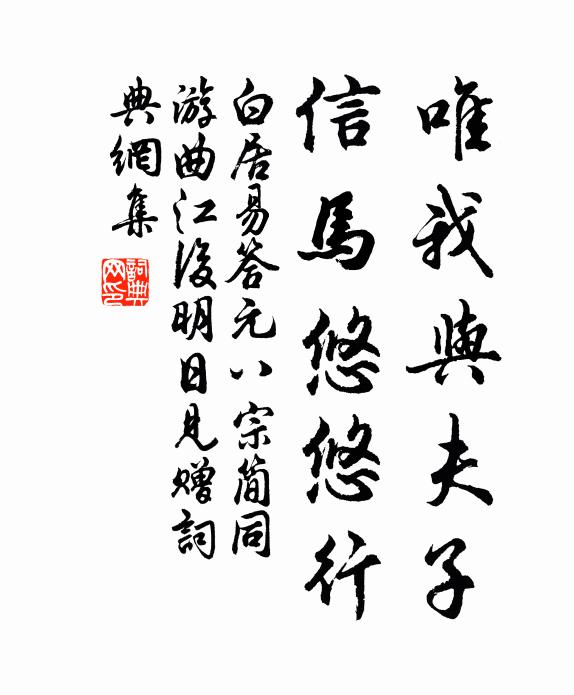 唯我與夫子
信馬悠悠行
白居易答元八宗簡同
游曲江後明日見贈詞
典網集
詞典
網印